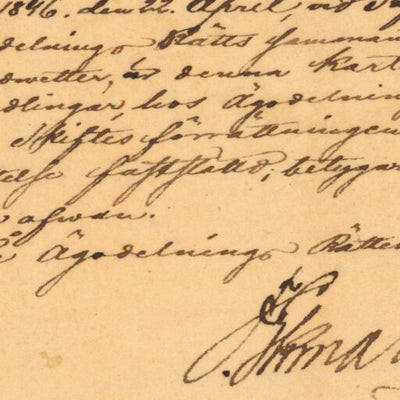 1846. den 22. April, vid Å
delnings Rätts samman
dwetter, är denna Kart
dlingar, hos Ägodelnin
Skiftes förrättningen
telse fastställd; betygar
ofwan.
Ägodelnings Rätten